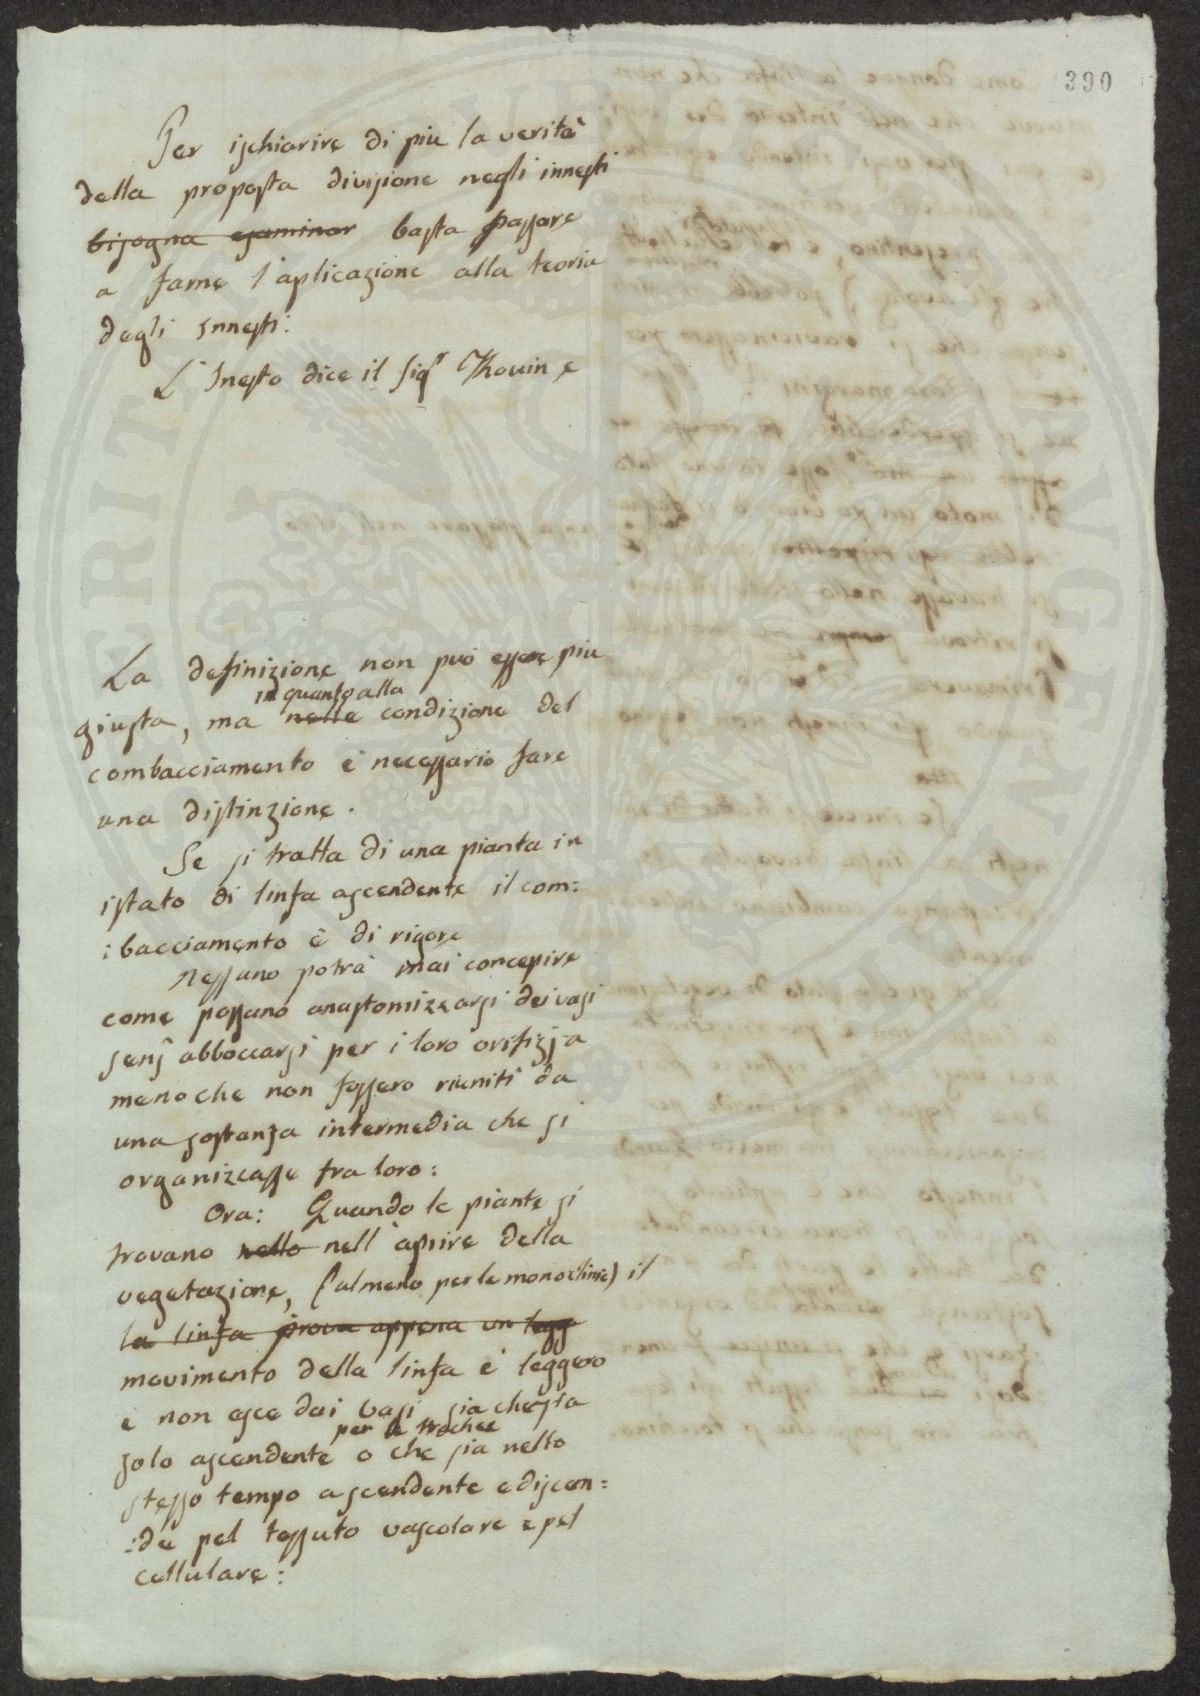 390
Per ischiarire di piu la verità
della proposta divisione negli innesti
bisogna esaminar basta passare
a farne l'aplicazione alla teoria
degli Innesti:
L'Inesto dice il Sigr Thouin e
La definizione non può essere piu
in quanto alla
giusta, ma nelle condizione del
combacciamento è necessario fare
una distinzione.
Se si tratta di una pianta in
istato di linfa ascendente il com:
:bacciamento è di rigore
Nessuno potrà mai concepire
come possano anastomizzarsi dei vasi
senz abboccarsi per i loro orifizj a
meno che non fossero riuniti da
una sostanza intermedia che si
organizzasse fra loro:
Ora: Quando le piante si
trovano nello nell'aprire della
vegetazione, (almeno per le monoclinie) il
la linfa prova appena un legg
movimento della linfa è leggero
e non esce dai vasi sia che sia
per le trachee
solo ascendente o che sia nello
stesso tempo ascendente e discen:
:de pel tessuto vascolare e pel
cellulare: